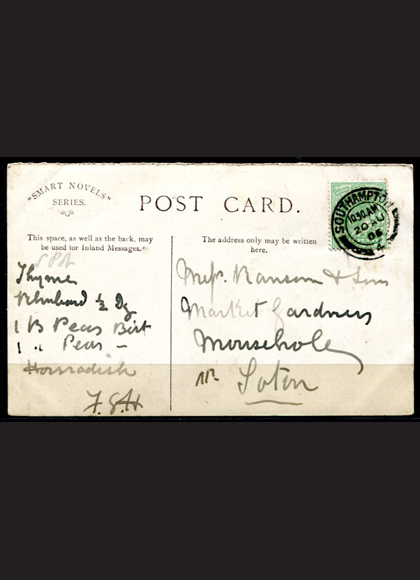 "SMART NOVELS"
SERIES.
POST CARD.
This space, as well as the back, may
be used for Inland Messages.
The address only may be written
here.
SOUTHAMPTON
10.30 AM
20
05
4
Thyme
Rhubarb ½ Dz
1 B Peas
1 " Peas –
Horsradish
F.G.H
Messrs. Ransom & Sons
Market Gardners
Mousehole
nr Soton